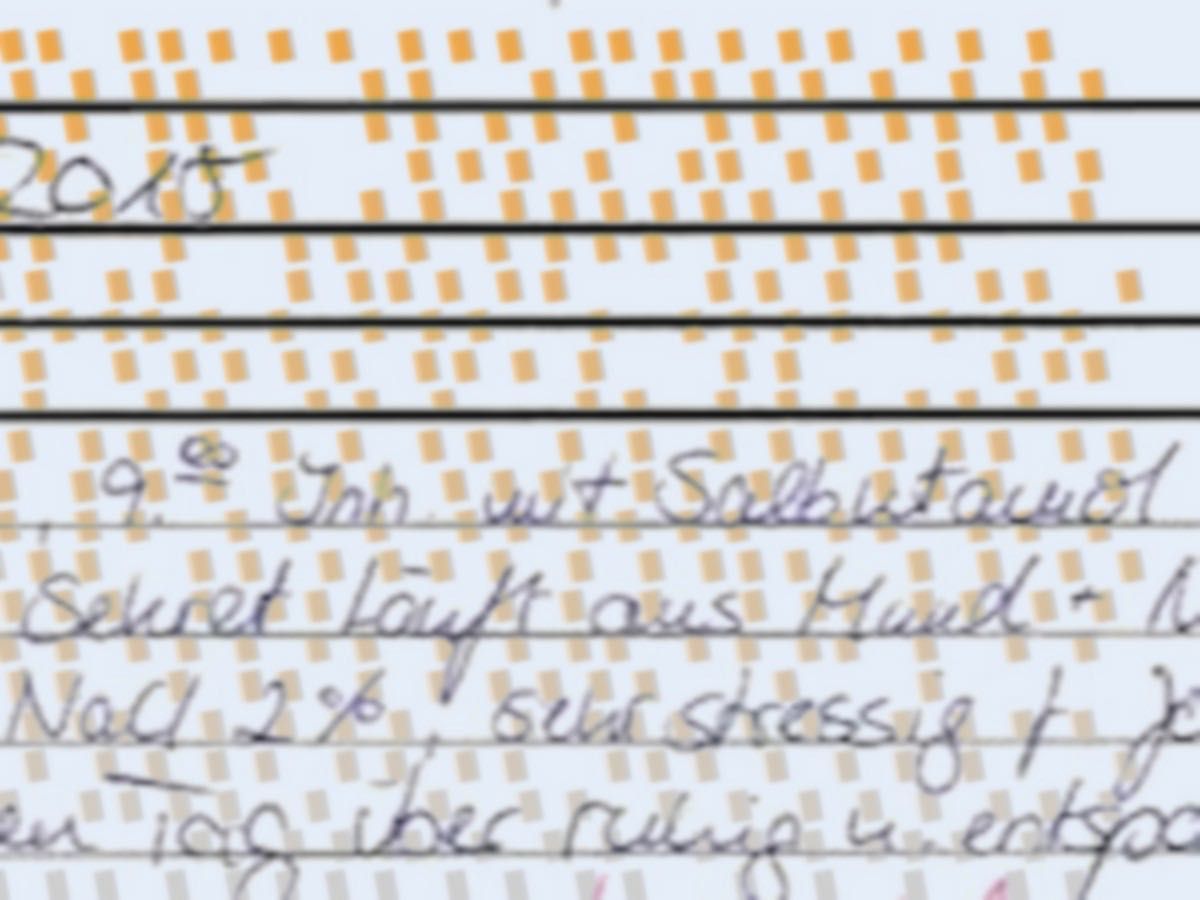 2015
9.00 Inh. mit Salbutamol
Sekret läuft aus Mund +
NaCl 2%, sehr stressig f
über ruhig u.